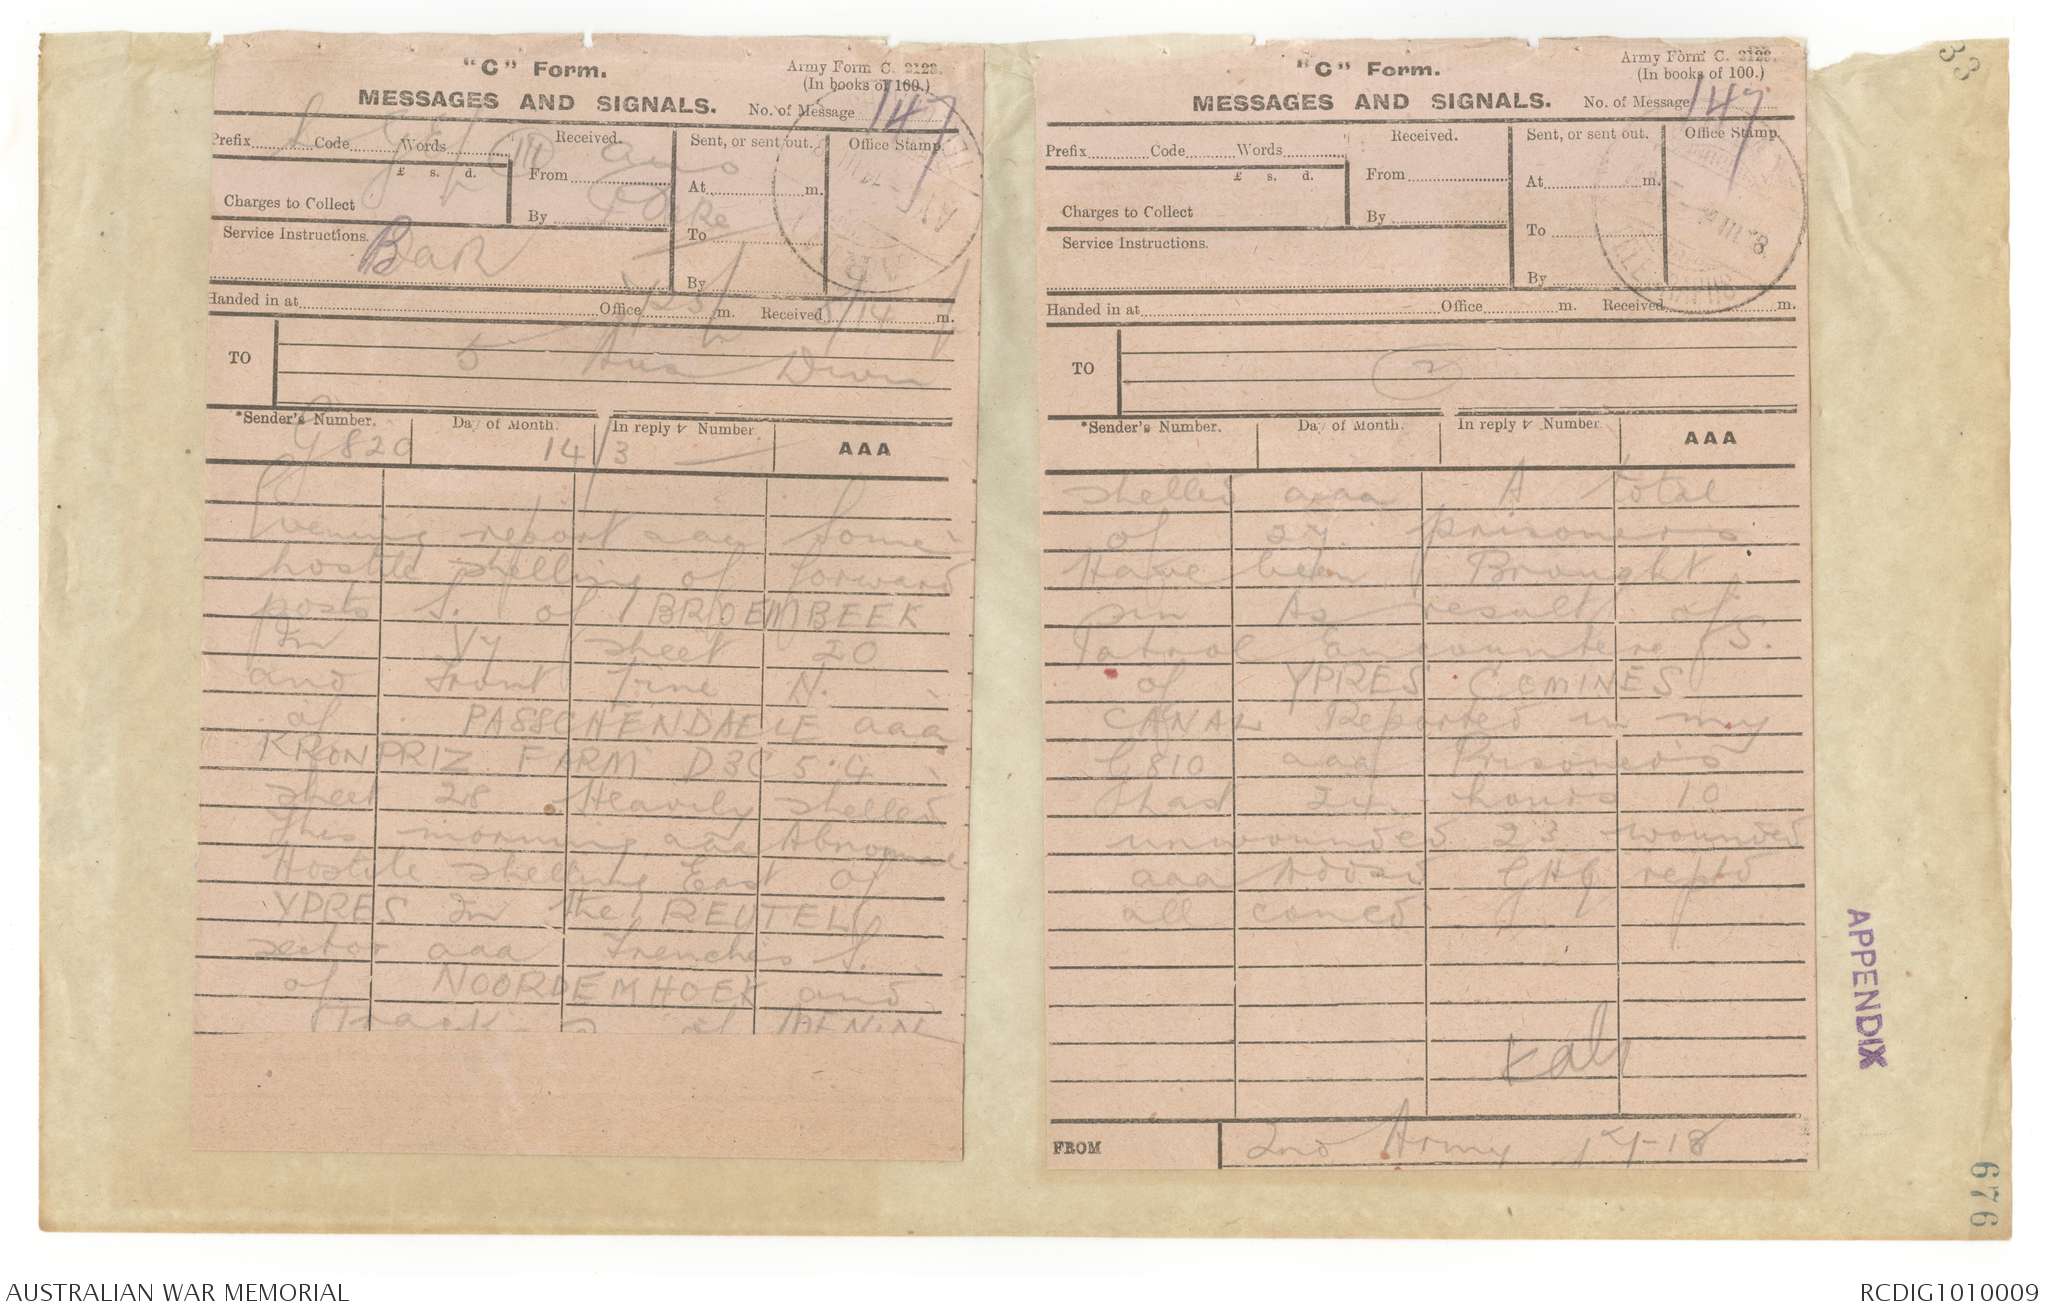 "C" Form.
Army Form C. 2123.
(In books of 100.)
MESSAGES AND SIGNALS.
No. of Message 147
Prefix Code Words
Received.
Sent, or sent out.
Office Stamp.
£ s. d.
From
At m.
Charges to Collect
By
To
Service Instructions.
By
Handed in at Office m. Received m.
TO 5 Aus Divn
*Sender's Number.
Day of Month.
In reply to Number
AAA
G 820 14/3
Evening report aaa Some
hostile shelling of forward
posts S. of BROEMBEEK
In V7 sheet 20
and Front line N.
of PASSCHENDAELE aaa
KRONPRIZ FARM D3C 5.4
sheet 28 Heavily shelled
this morning aaa Abnormal
Hostile shelling East of
YPRES In the REUTEL
sector aaa Trenches S.
of NOORDEMHOEK and
Track of MENIN
"C" Form.
Army Form C. 2123.
(In books of 100.)
MESSAGES AND SIGNALS.
No. of Message 147
Prefix Code Words
Received.
Sent, or sent out.
Office Stamp.
£ s. d.
From
At m.
Charges to Collect
By
To
Service Instructions.
By
Handed in at Office m. Received m.
TO
2
*Sender's Number.
Day of Month.
In reply to Number
AAA
shelled aaa A total
of prisoners
Have been Brought
in As result of
Patrol Encounters S.
of YPRES COMINES
CANAL Reported in my
G810 aaa Prisoners
Past 24 hours 10
unwounded 23 wounded
aaa Addsd GHQ reptd
all concd
FROM 2nd Army
33
APPENDIX
676
AUSTRALIAN WAR MEMORIAL
RCDIG1010009